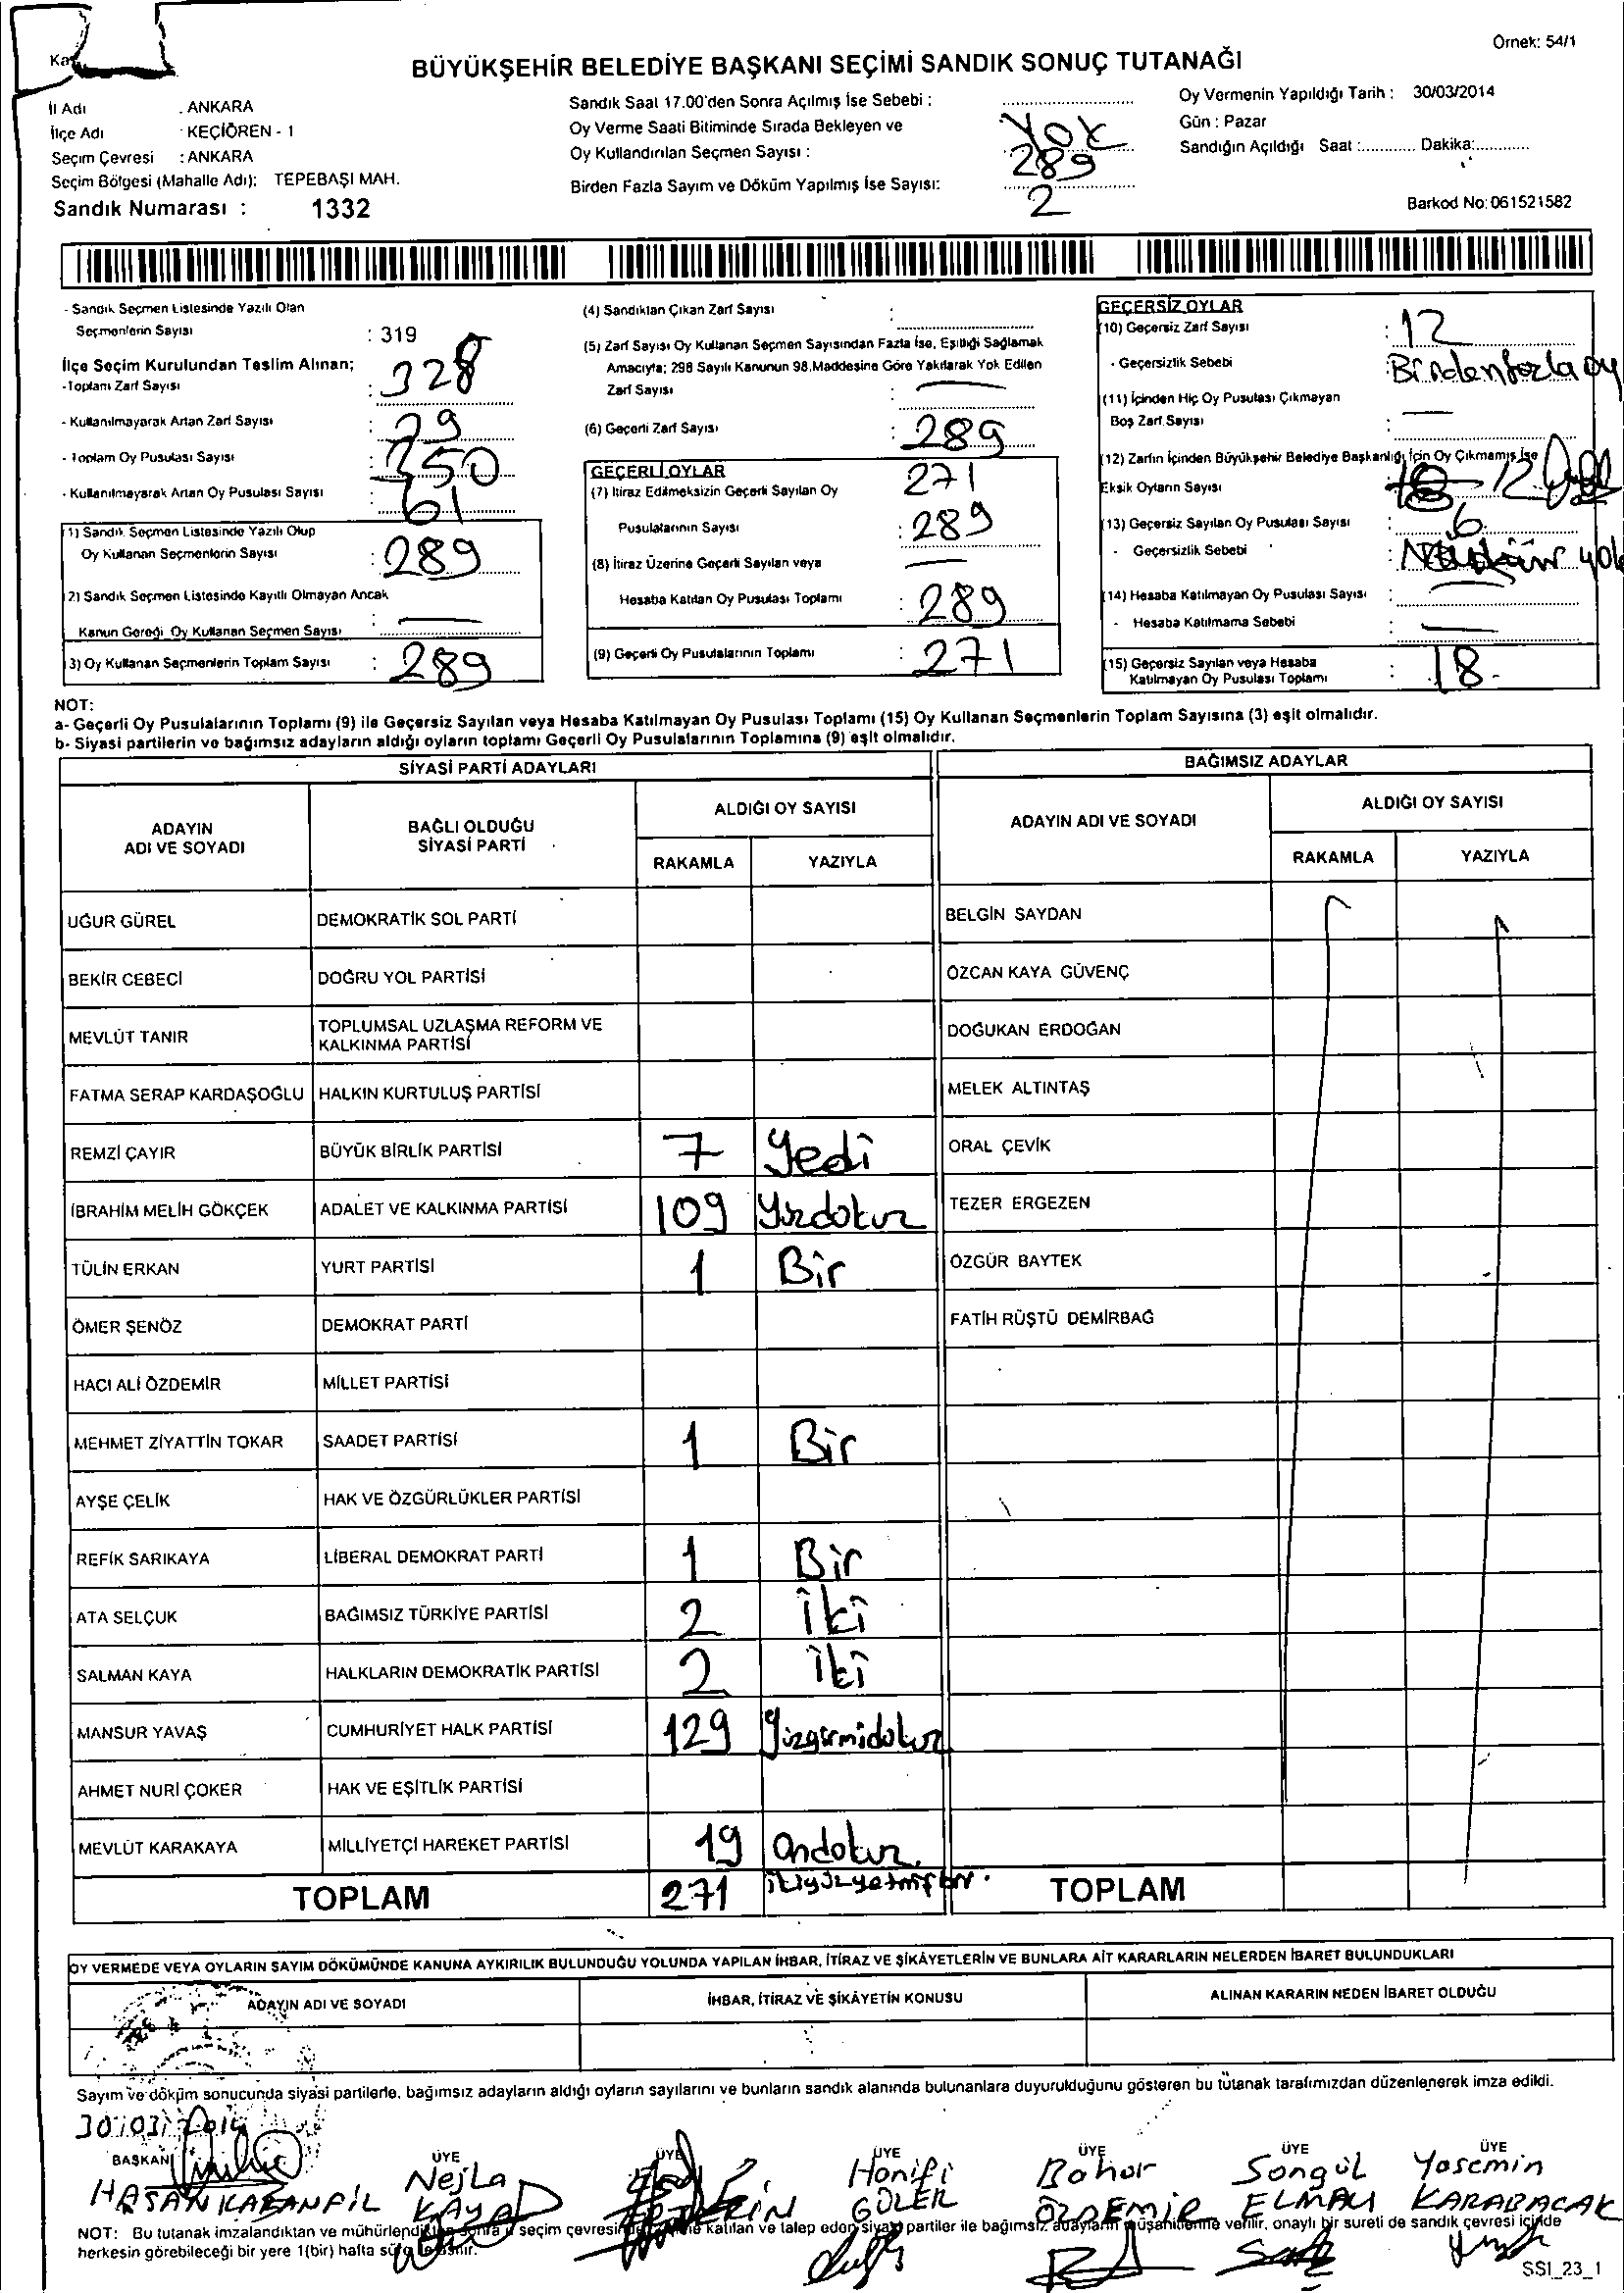 Örnek: 54/1
BÜYÜKŞEHİR BELEDİYE BAŞKANI SEÇİMİ SANDIK SONUÇ TUTANAĞI
İl Adı : ANKARA
İlçe Adı : KEÇİÖREN - 1
Seçim Çevresi : ANKARA
Seçim Bölgesi (Mahalle Adı): TEPEBAŞI MAH.
Sandık Numarası : 1332
Sandık Saat 17.00'den Sonra Açılmış İse Sebebi :
Oy Verme Saati Bitiminde Sırada Bekleyen ve
Oy Kullandırılan Seçmen Sayısı :
Birden Fazla Sayım ve Döküm Yapılmış İse Sayısı:
Yok
289
2
Oy Vermenin Yapıldığı Tarih : 30/03/2014
Gün : Pazar
Sandığın Açıldığı Saat :............ Dakika:............
Barkod No: 061521582
- Sandık Seçmen Listesinde Yazılı Olan
Seçmenlerin Sayısı : 319
İlçe Seçim Kurulundan Teslim Alınan;
- Toplam Zarf Sayısı : 328
- Kullanılmayarak Artan Zarf Sayısı : 39
- Toplam Oy Pusulası Sayısı : 350
- Kullanılmayarak Artan Oy Pusulası Sayısı : 61
(1) Sandık Seçmen Listesinde Yazılı Olup
Oy Kullanan Seçmenlerin Sayısı : 289
(2) Sandık Seçmen Listesinde Kayıtlı Olmayan Ancak
Kanun Gereği Oy Kullanan Seçmen Sayısı : —
(3) Oy Kullanan Seçmenlerin Toplam Sayısı : 289
(4) Sandıktan Çıkan Zarf Sayısı :
(5) Zarf Sayısı Oy Kullanan Seçmen Sayısından Fazla İse, Eşitliği Sağlamak
Amacıyla; 298 Sayılı Kanunun 98.Maddesine Göre Yakılarak Yok Edilen
Zarf Sayısı : —
(6) Geçerli Zarf Sayısı : 289
GEÇERLİ OYLAR
(7) İtiraz Edilmeksizin Geçerli Sayılan Oy 271
Pusulalarının Sayısı : 289
(8) İtiraz Üzerine Geçerli Sayılan veya —
Hesaba Katılan Oy Pusulası Toplamı : 289
(9) Geçerli Oy Pusulalarının Toplamı : 271
GEÇERSİZ OYLAR
(10) Geçersiz Zarf Sayısı : 12
- Geçersizlik Sebebi : Birden fazla oy
(11) İçinden Hiç Oy Pusulası Çıkmayan
Boş Zarf Sayısı : —
(12) Zarfın İçinden Büyükşehir Belediye Başkanlığı İçin Oy Çıkmamış İse
Eksik Oyların Sayısı : 12
(13) Geçersiz Sayılan Oy Pusulası Sayısı : 6
- Geçersizlik Sebebi : Mühür yok
(14) Hesaba Katılmayan Oy Pusulası Sayısı : —
- Hesaba Katılmama Sebebi : —
(15) Geçersiz Sayılan veya Hesaba
Katılmayan Oy Pusulası Toplamı : 18
NOT:
a- Geçerli Oy Pusulalarının Toplamı (9) ile Geçersiz Sayılan veya Hesaba Katılmayan Oy Pusulası Toplamı (15) Oy Kullanan Seçmenlerin Toplam Sayısına (3) eşit olmalıdır.
b- Siyasi partilerin ve bağımsız adayların aldığı oyların toplamı Geçerli Oy Pusulalarının Toplamına (9) eşit olmalıdır.
SİYASİ PARTİ ADAYLARI
ADAYIN
ADI VE SOYADI
BAĞLI OLDUĞU
SİYASİ PARTİ
ALDIĞI OY SAYISI
RAKAMLA YAZIYLA
UĞUR GÜREL DEMOKRATİK SOL PARTİ
BEKİR CEBECİ DOĞRU YOL PARTİSİ
MEVLÜT TANIR TOPLUMSAL UZLAŞMA REFORM VE
KALKINMA PARTİSİ
FATMA SERAP KARDAŞOĞLU HALKIN KURTULUŞ PARTİSİ
REMZİ ÇAYIR BÜYÜK BİRLİK PARTİSİ 7 Yedi
İBRAHİM MELİH GÖKÇEK ADALET VE KALKINMA PARTİSİ 109 Yüzdokuz
TÜLİN ERKAN YURT PARTİSİ 1 Bir
ÖMER ŞENÖZ DEMOKRAT PARTİ
HACI ALİ ÖZDEMİR MİLLET PARTİSİ
MEHMET ZİYATTİN TOKAR SAADET PARTİSİ 1 Bir
AYŞE ÇELİK HAK VE ÖZGÜRLÜKLER PARTİSİ
REFİK SARIKAYA LİBERAL DEMOKRAT PARTİ 1 Bir
ATA SELÇUK BAĞIMSIZ TÜRKİYE PARTİSİ 2 iki
SALMAN KAYA HALKLARIN DEMOKRATİK PARTİSİ 2 iki
MANSUR YAVAŞ CUMHURİYET HALK PARTİSİ 129 Yüzyirmidokuz
AHMET NURİ ÇOKER HAK VE EŞİTLİK PARTİSİ
MEVLÜT KARAKAYA MİLLİYETÇİ HAREKET PARTİSİ 19 Ondokuz
TOPLAM 271 ikiyüzyetmişbir.
BAĞIMSIZ ADAYLAR
ADAYIN ADI VE SOYADI
ALDIĞI OY SAYISI
RAKAMLA YAZIYLA
BELGİN SAYDAN
ÖZCAN KAYA GÜVENÇ
DOĞUKAN ERDOĞAN
MELEK ALTINTAŞ
ORAL ÇEVİK
TEZER ERGEZEN
ÖZGÜR BAYTEK
FATİH RÜŞTÜ DEMİRBAĞ
TOPLAM
OY VERMEDE VEYA OYLARIN SAYIM DÖKÜMÜNDE KANUNA AYKIRILIK BULUNDUĞU YOLUNDA YAPILAN İHBAR, İTİRAZ VE ŞİKÂYETLERİN VE BUNLARA AİT KARARLARIN NELERDEN İBARET BULUNDUKLARI
ADAYIN ADI VE SOYADI İHBAR, İTİRAZ VE ŞİKÂYETİN KONUSU ALINAN KARARIN NEDEN İBARET OLDUĞU
Sayım ve döküm sonucunda siyasi partilerle, bağımsız adayların aldığı oyların sayılarını ve bunların sandık alanında bulunanlara duyurulduğunu gösteren bu tutanak tarafımızdan düzenlenerek imza edildi.
30/03/2014
BAŞKAN ÜYE ÜYE ÜYE ÜYE ÜYE ÜYE
HASAN KABANFİL
Nejla KAYA
Hanifi GÜLER
Bahar ÖZDEMİR
Songül ELMALI
Yasemin KARABACAK
NOT: Bu tutanak imzalandıktan ve mühürlendikten sonra seçim çevresinde katılan ve talep eden siyasi partiler ile bağımsız adayların müşahitlerine verilir, onaylı bir sureti de sandık çevresi içinde
herkesin görebileceği bir yere 1(bir) hafta süre ile asılır.
SSI_23_1